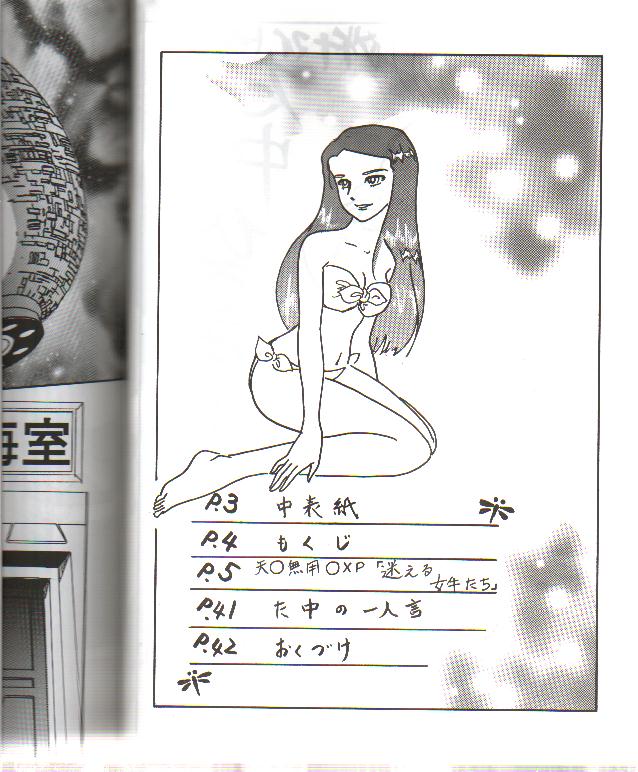 海室
P.3 中表紙
P.4 もくじ
P.5 天〇無用〇XP「迷える
女牛たち」
P.41 た中の一人言
P.42 おくづけ